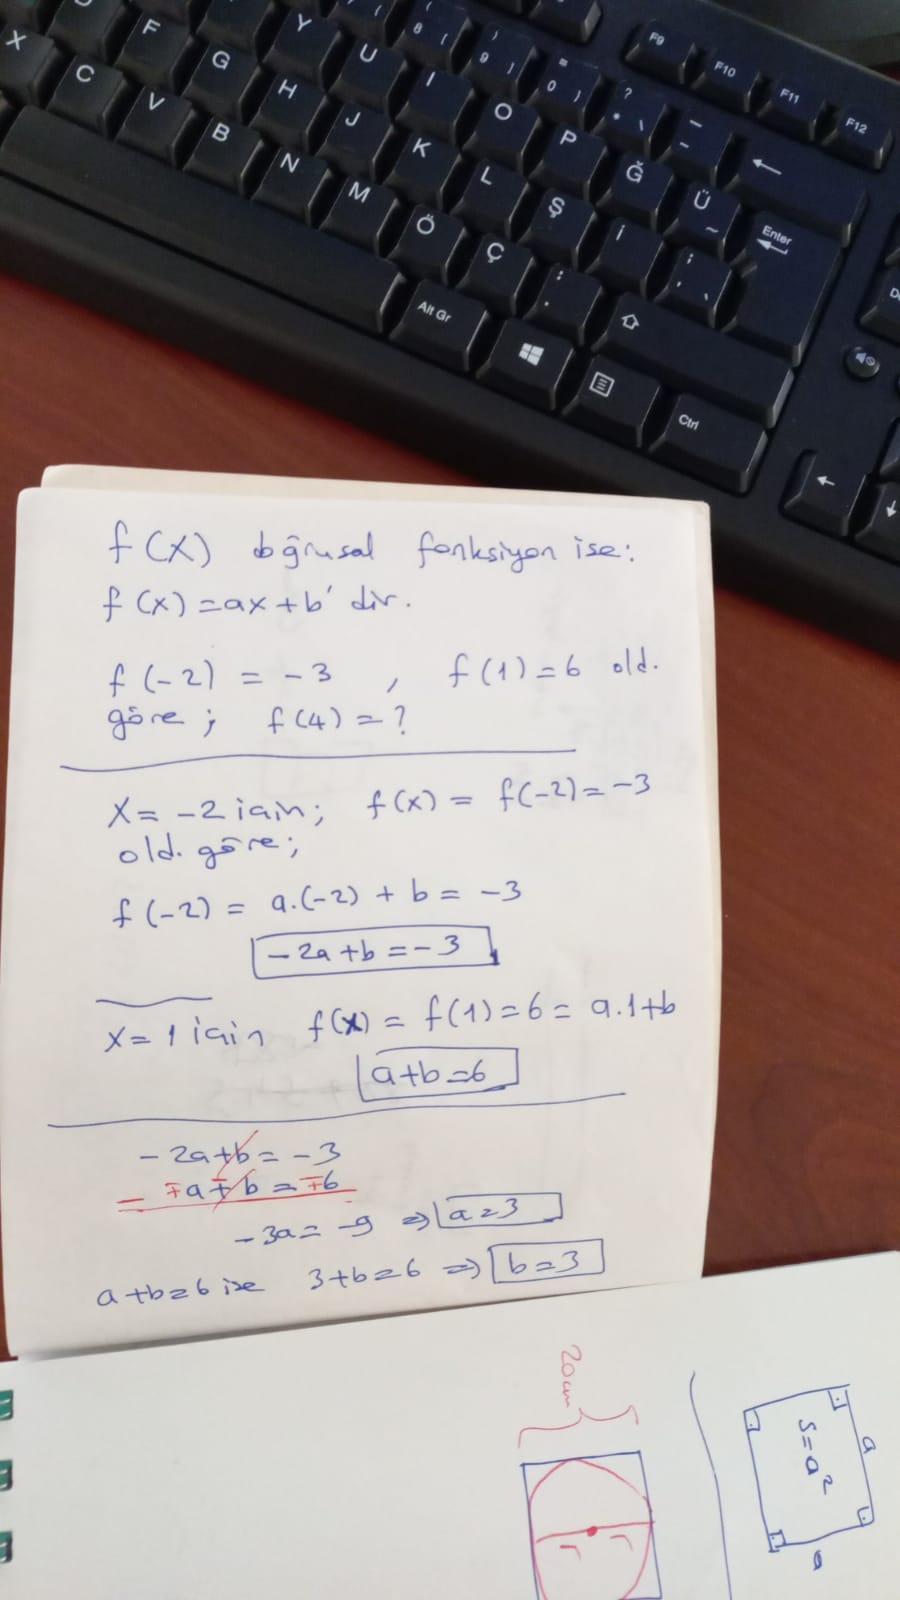 f(x) doğrusal fonksiyon ise:
f(x)=ax+b' dir.
f(-2) = -3 , f(1)=6 old.
göre ; f(4)=?
x= -2 için; f(x) = f(-2)=-3
old. göre;
f(-2) = a.(-2) + b = -3
-2a+b=-3
x=1 için f(x) = f(1)=6= a.1+b
a+b=6
-2a+b=-3
∓a∓b=∓6
-3a=-9 => a=3
a+b=6 ise 3+b=6 => b=3
20cm
r r
S=a²
a
a
X C V B N M Ö Ç
F G H J K L Ş İ
Y U I O P Ğ Ü
8 (
9 )
= 0 }
? * \
_ -
F9 F10 F11 F12
Enter
~
; , `
: .
Alt Gr
Ctrl